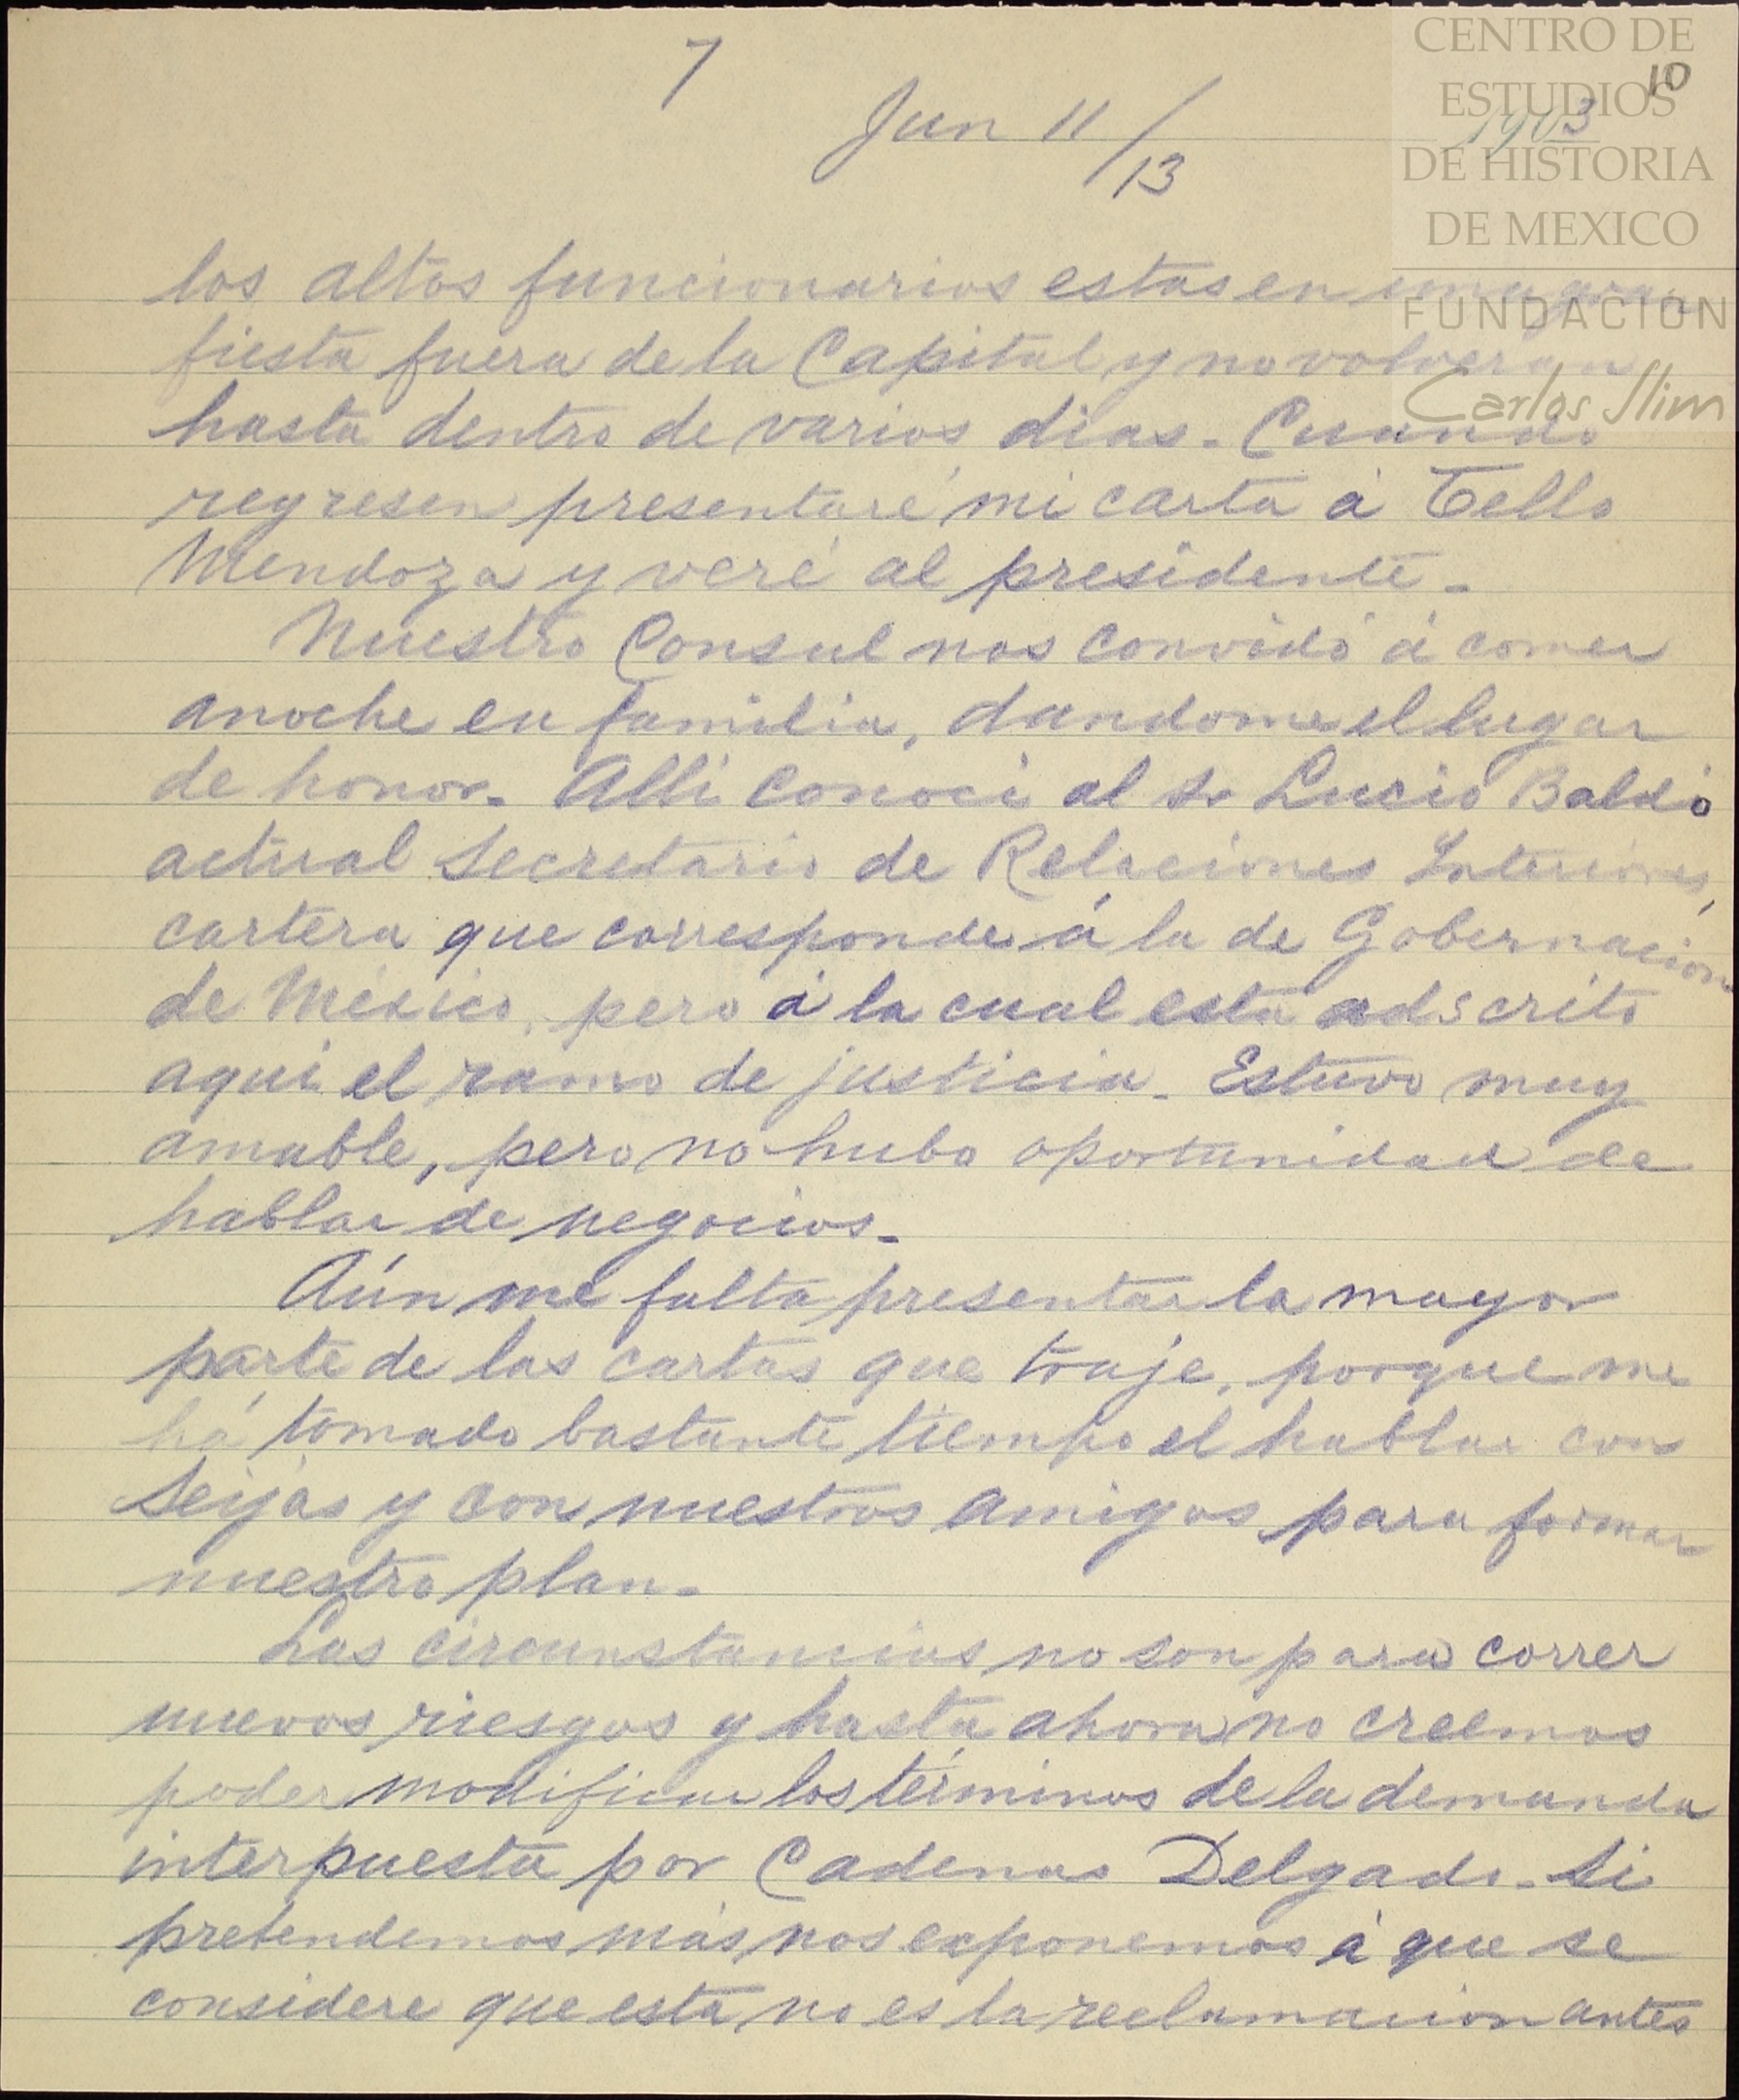 7
10
Jun 11/13
1903
CENTRO DE
ESTUDIOS
DE HISTORIA
DE MEXICO
FUNDACION
Carlos Slim
los altos funcionarios estas en una gran
fiesta fuera de la Capital y no volveran
hasta dentro de varios dias. Cuando
regresen presentaré mi carta á Tello
Mendoza y veré al presidente.
Nuestro Consul nos convidó á comer
anoche en familia, dandome el lugar
de honor. Alli conoci al Sr Lucio Baldó
actual Secretario de Relaciones Interiores,
cartera que corresponde á la de Gobernación
de México, pero á la cual está adscrito
aqui el ramo de justicia. Estuvo muy
amable, pero no hubo oportunidad de
hablar de negocios.
Aún me falta presentar la mayor
parte de las cartas que traje, porque me
há tomado bastante tiempo el hablar con
Seijas y con nuestros amigos para formar
nuestro plan.
Las circunstancias no son para correr
nuevos riesgos y hasta ahora no creemos
poder modificar los términos de la demanda
interpuesta por Cadenas Delgado. Si
pretendemos más nos exponemos á que se
considere que esta no es la reclamacion antes